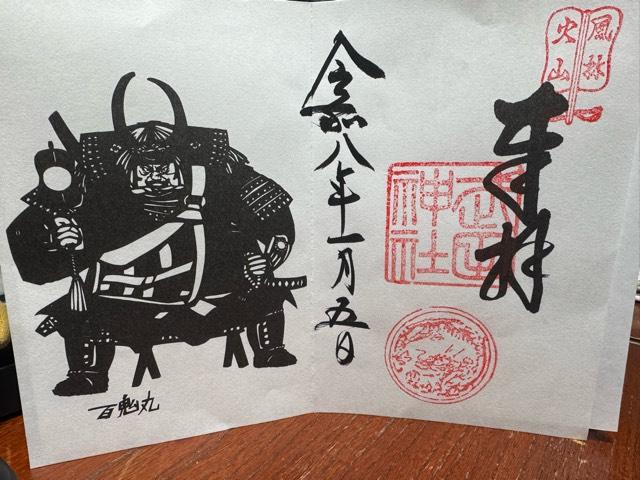 風林
火山
奉拝
武田
神社
令和八年一月五日
百鬼丸